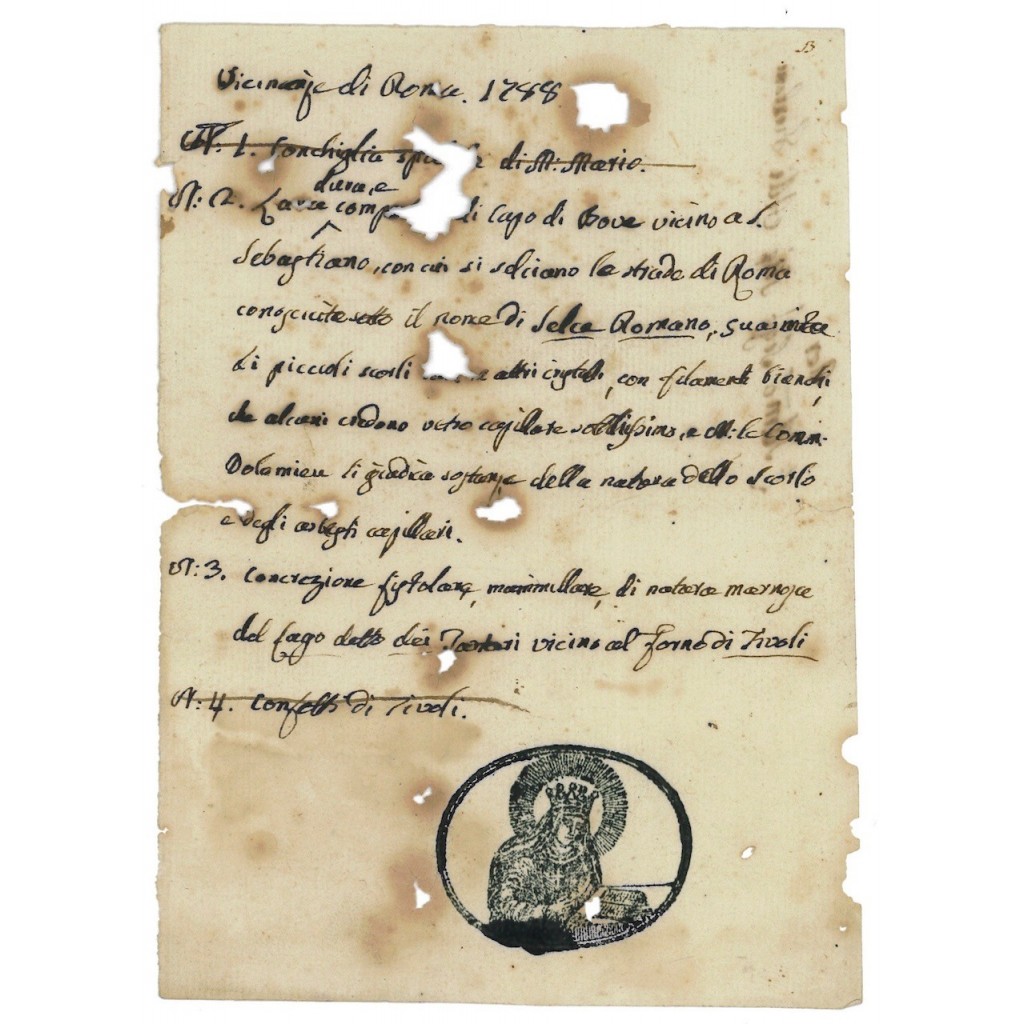 13
Vicinanze di Roma. 1788
N: 1. Conchiglia di M: Mario.
dura, e
N: 2. Lava di Capo di Bove vicino a S.
Sebastiano, con cui si selciano le strade di Roma
conosciuta sotto il nome di Selce Romano,
di piccoli scorli altri con filamenti bianchi,
che alcuni credono vetro capillare sottilissimo, e M: le Comm:
Dolomieu li giudica sostanze della natura dello Scorlo
e degli asbesti capillari.
N: 3. Concrezione fistolare, mammillare, di natura marnosa
del Lago detto dei Tartari vicino al forno di Tivoli
N: 4. Confetti di Tivoli.